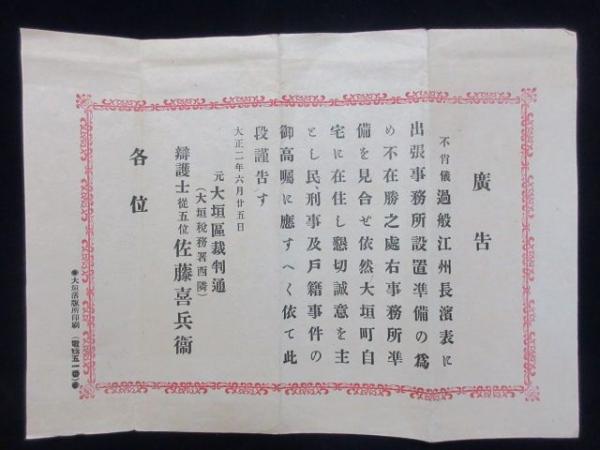 廣告
不肖儀過般江州長濱表に
出張事務所設置準備の爲
め不在勝之處右事務所準
備を見合せ依然大垣町自
宅に在住し懇切誠意を主
とし民、刑事及戸籍事件の
御高囑に應すへく依て此
段謹告す
大正二年六月廿五日
元大垣區裁判通
(大垣税務署西隣)
辯護士從五位佐藤喜兵衞
各位
●大垣活版所印刷(電話五一〇)●